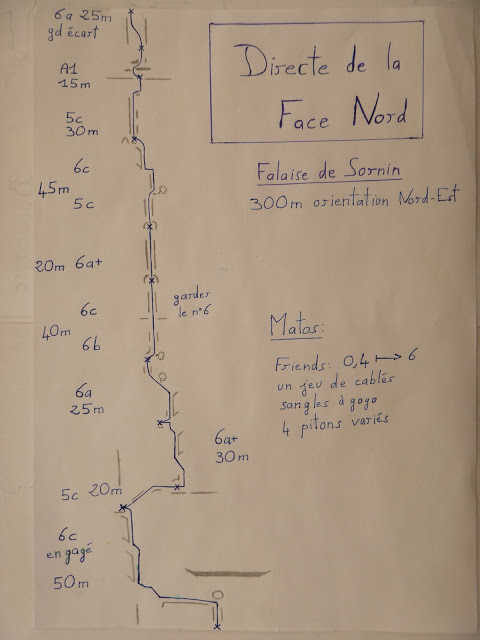 6a 25m
gd écart
A1
15m
5c
30m
6c
45m
5c
20m 6a+
6c
40m
6b
garder
le n°6
6a
25m
6a+
30m
5c 20m
6c
engagé
50m
Directe de la
Face Nord
Falaise de Sornin
300m orientation Nord-Est
Matos:
Friends: 0,4 ↦ 6
un jeu de cablés
sangles à gogo
4 pitons variés